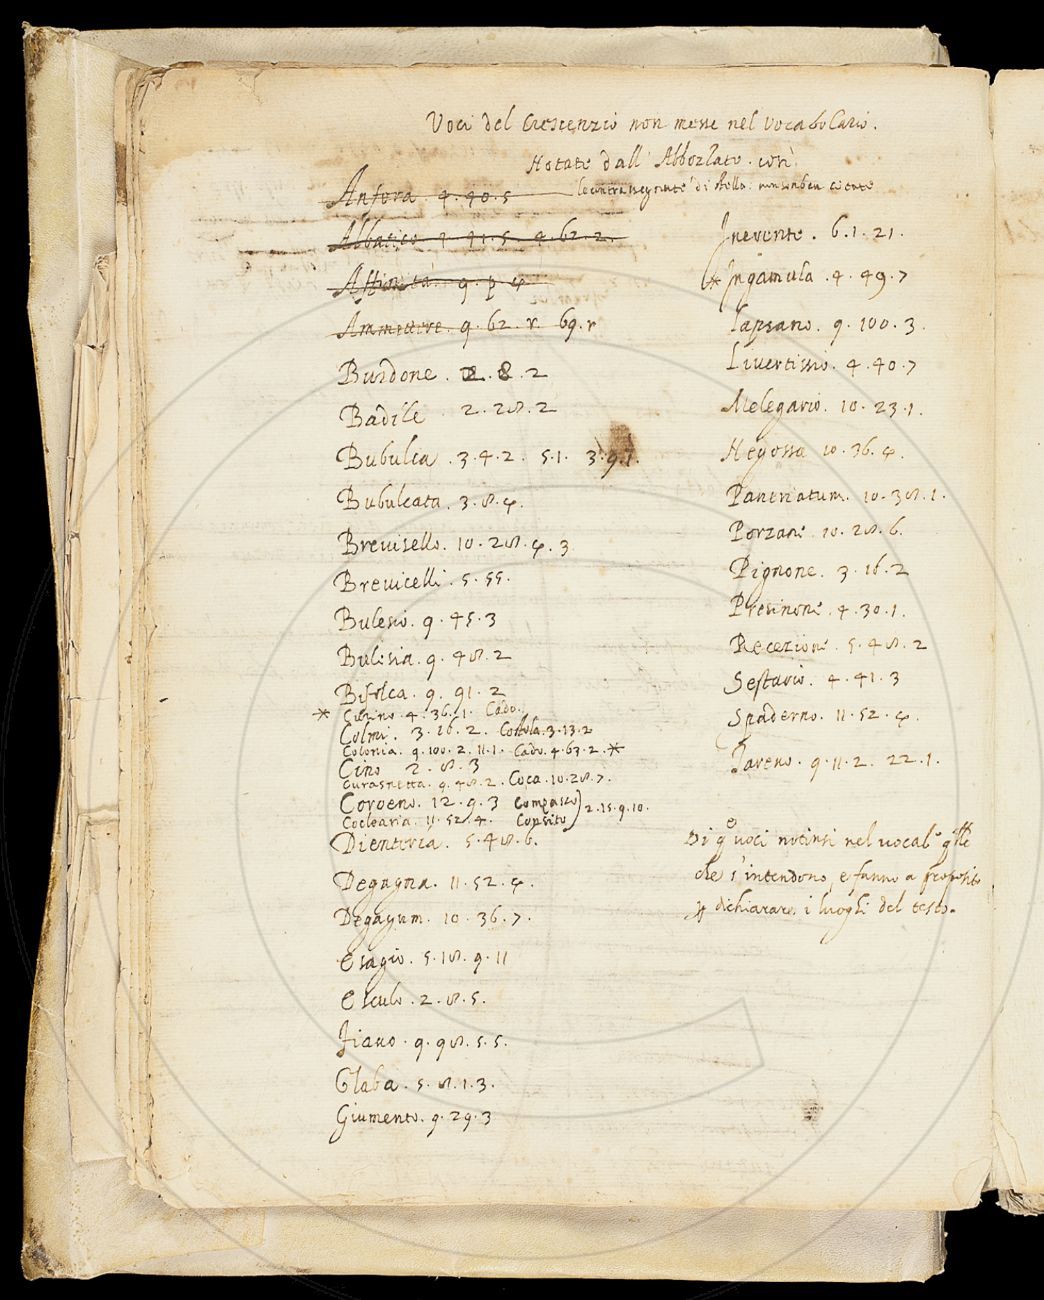 Voci del Crescenzio non messe nel Vocabolario.
Notate dall' Abbozzato. così
le contrasegnate di stella. non son ben citate
Anfora. 4.40.5
Albatico 4.41.5. 4.62.2.
Affinità. 9.p.4
Ammettere. 9.62.r. 69.r
Burdone. 2.8.2
Badile 2.28.2
Bubulca. 3.4.2. 5.1. 3.9.1.
Bubulcata. 3.8.4.
Brevisello. 10.28.4.3
Brevicelli. 5.55.
Bulesio. 9.45.3
Bulesia. 9.48.2
Bifolca. 9.91.2
* Citrino. 4.36.1. Cado.
Colmi. 3.16.2. Costola. 3.13.2
Colonia. 9.100.2. 11.1. Cado. 4.63.2. *
Cino 2.8.3
Curasnetta. 9.48.2. Coca. 10.28.7.
Coroeno. 12.9.3 Compasso
Cocloaria. 11.52.4. Copsito 2.15.9.10.
Dienteria. 5.48.6.
Degagna. 11.52.4.
Degagum. 10.36.7.
Esagio. 5.18.9.11
Esculo. 2.8.5.
Fiano. 9.98.5.5.
Glaba. 5.8.1.3.
Giumento. 9.29.3
Inevente. 6.1.21.
* Ingamula. 4.49.7
Lapsano. 9.100.3.
Livertisio. 4.40.7
Melegario. 10.23.1.
Negossa 10.36.4.
Pantnatum. 10.38.1.
Porzane. 10.28.6.
Pignone. 3.16.2
Presinone. 4.30.1.
Recezione. 5.48.2
Sestario. 4.41.3
Spaderno. 11.52.4.
Tareno. 9.11.2. 22.1.
Di q^e voci notinsi nel vocab^o q^lle
che s'intendono, e fanno a proposito
p dichiarare i luoghi del testo.